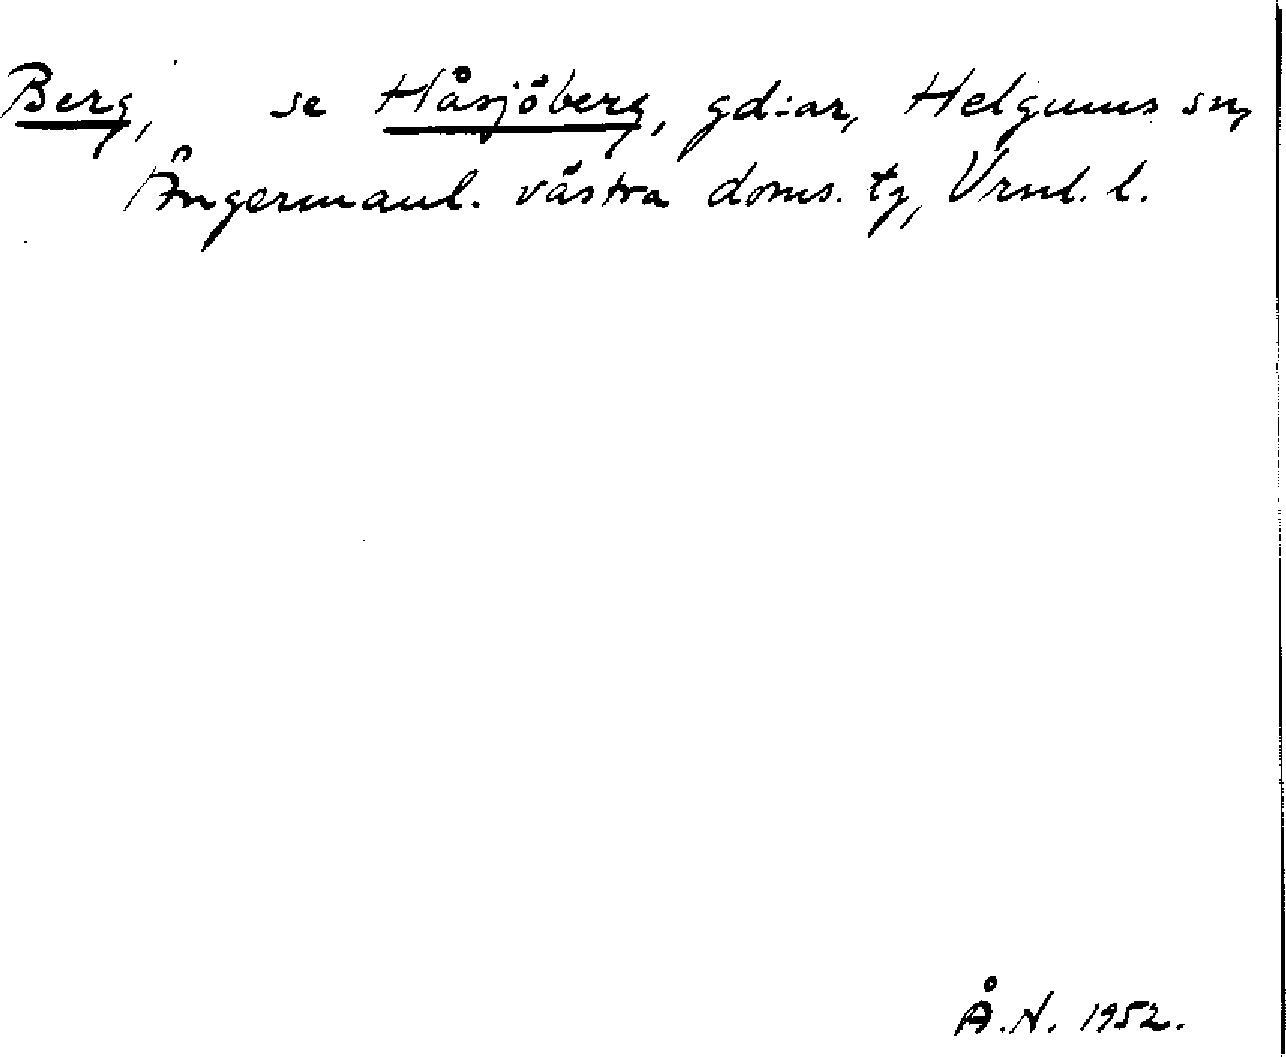 Berg, se Håsjöberg, gd:ar, Helgums sn,
Ångermanl. västra doms. tg, Vrnl. l.
Å.N. 1952.